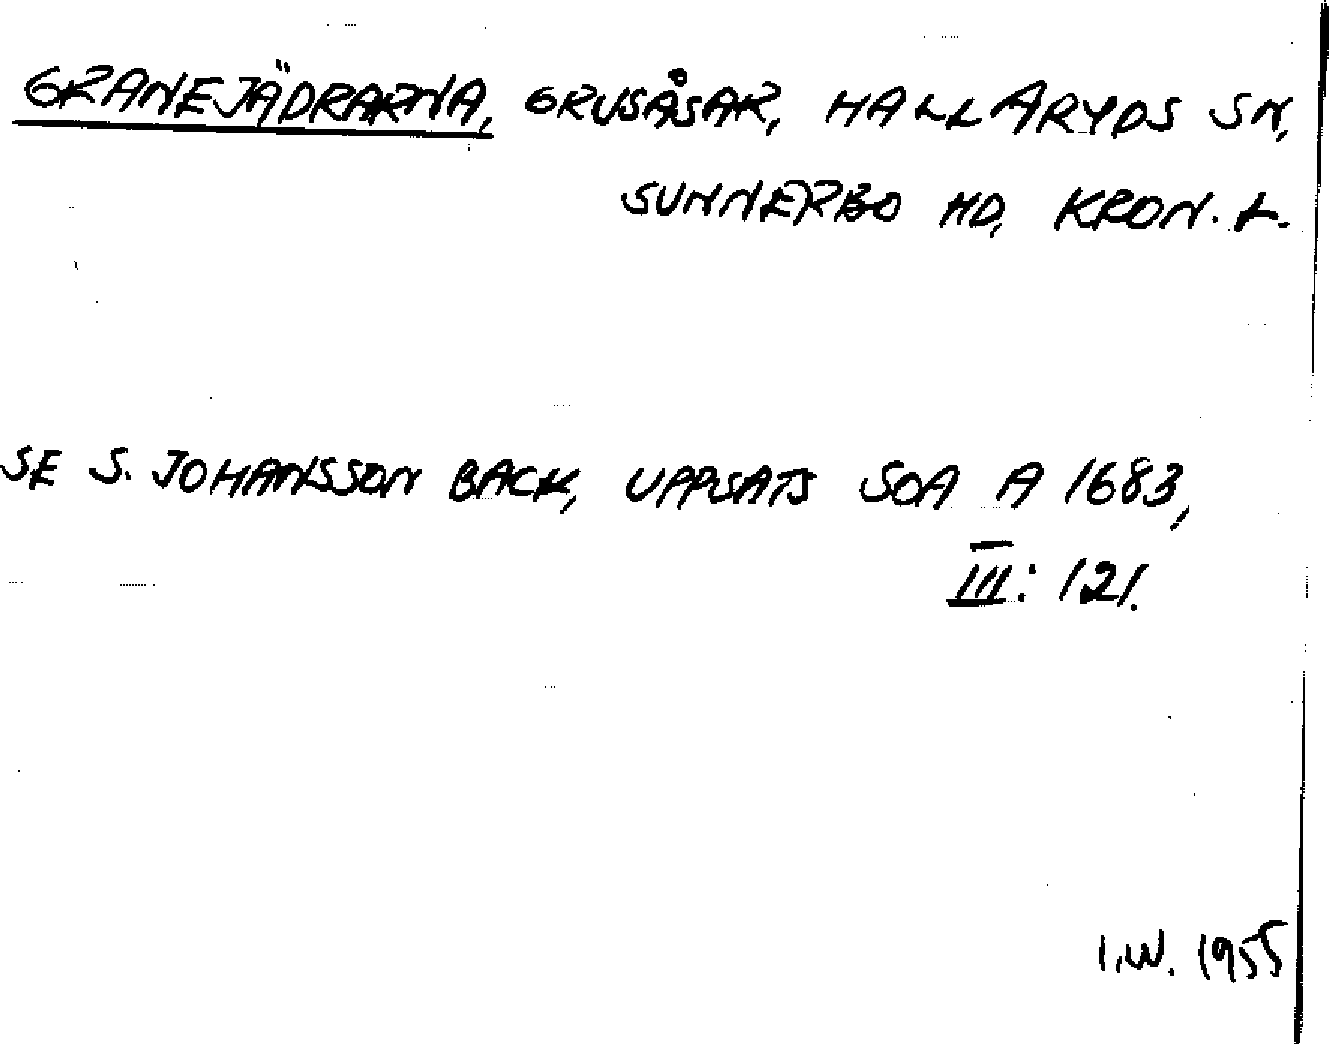 GRANEJÄDRARNA, GRUSÅSAR, HALLARYDS SN,
SUNNERBO HD, KRON. L.
SE S. JOHANSSON BACK, UPPSATS SOA A 1683,
III: 121.
I.W. 1955